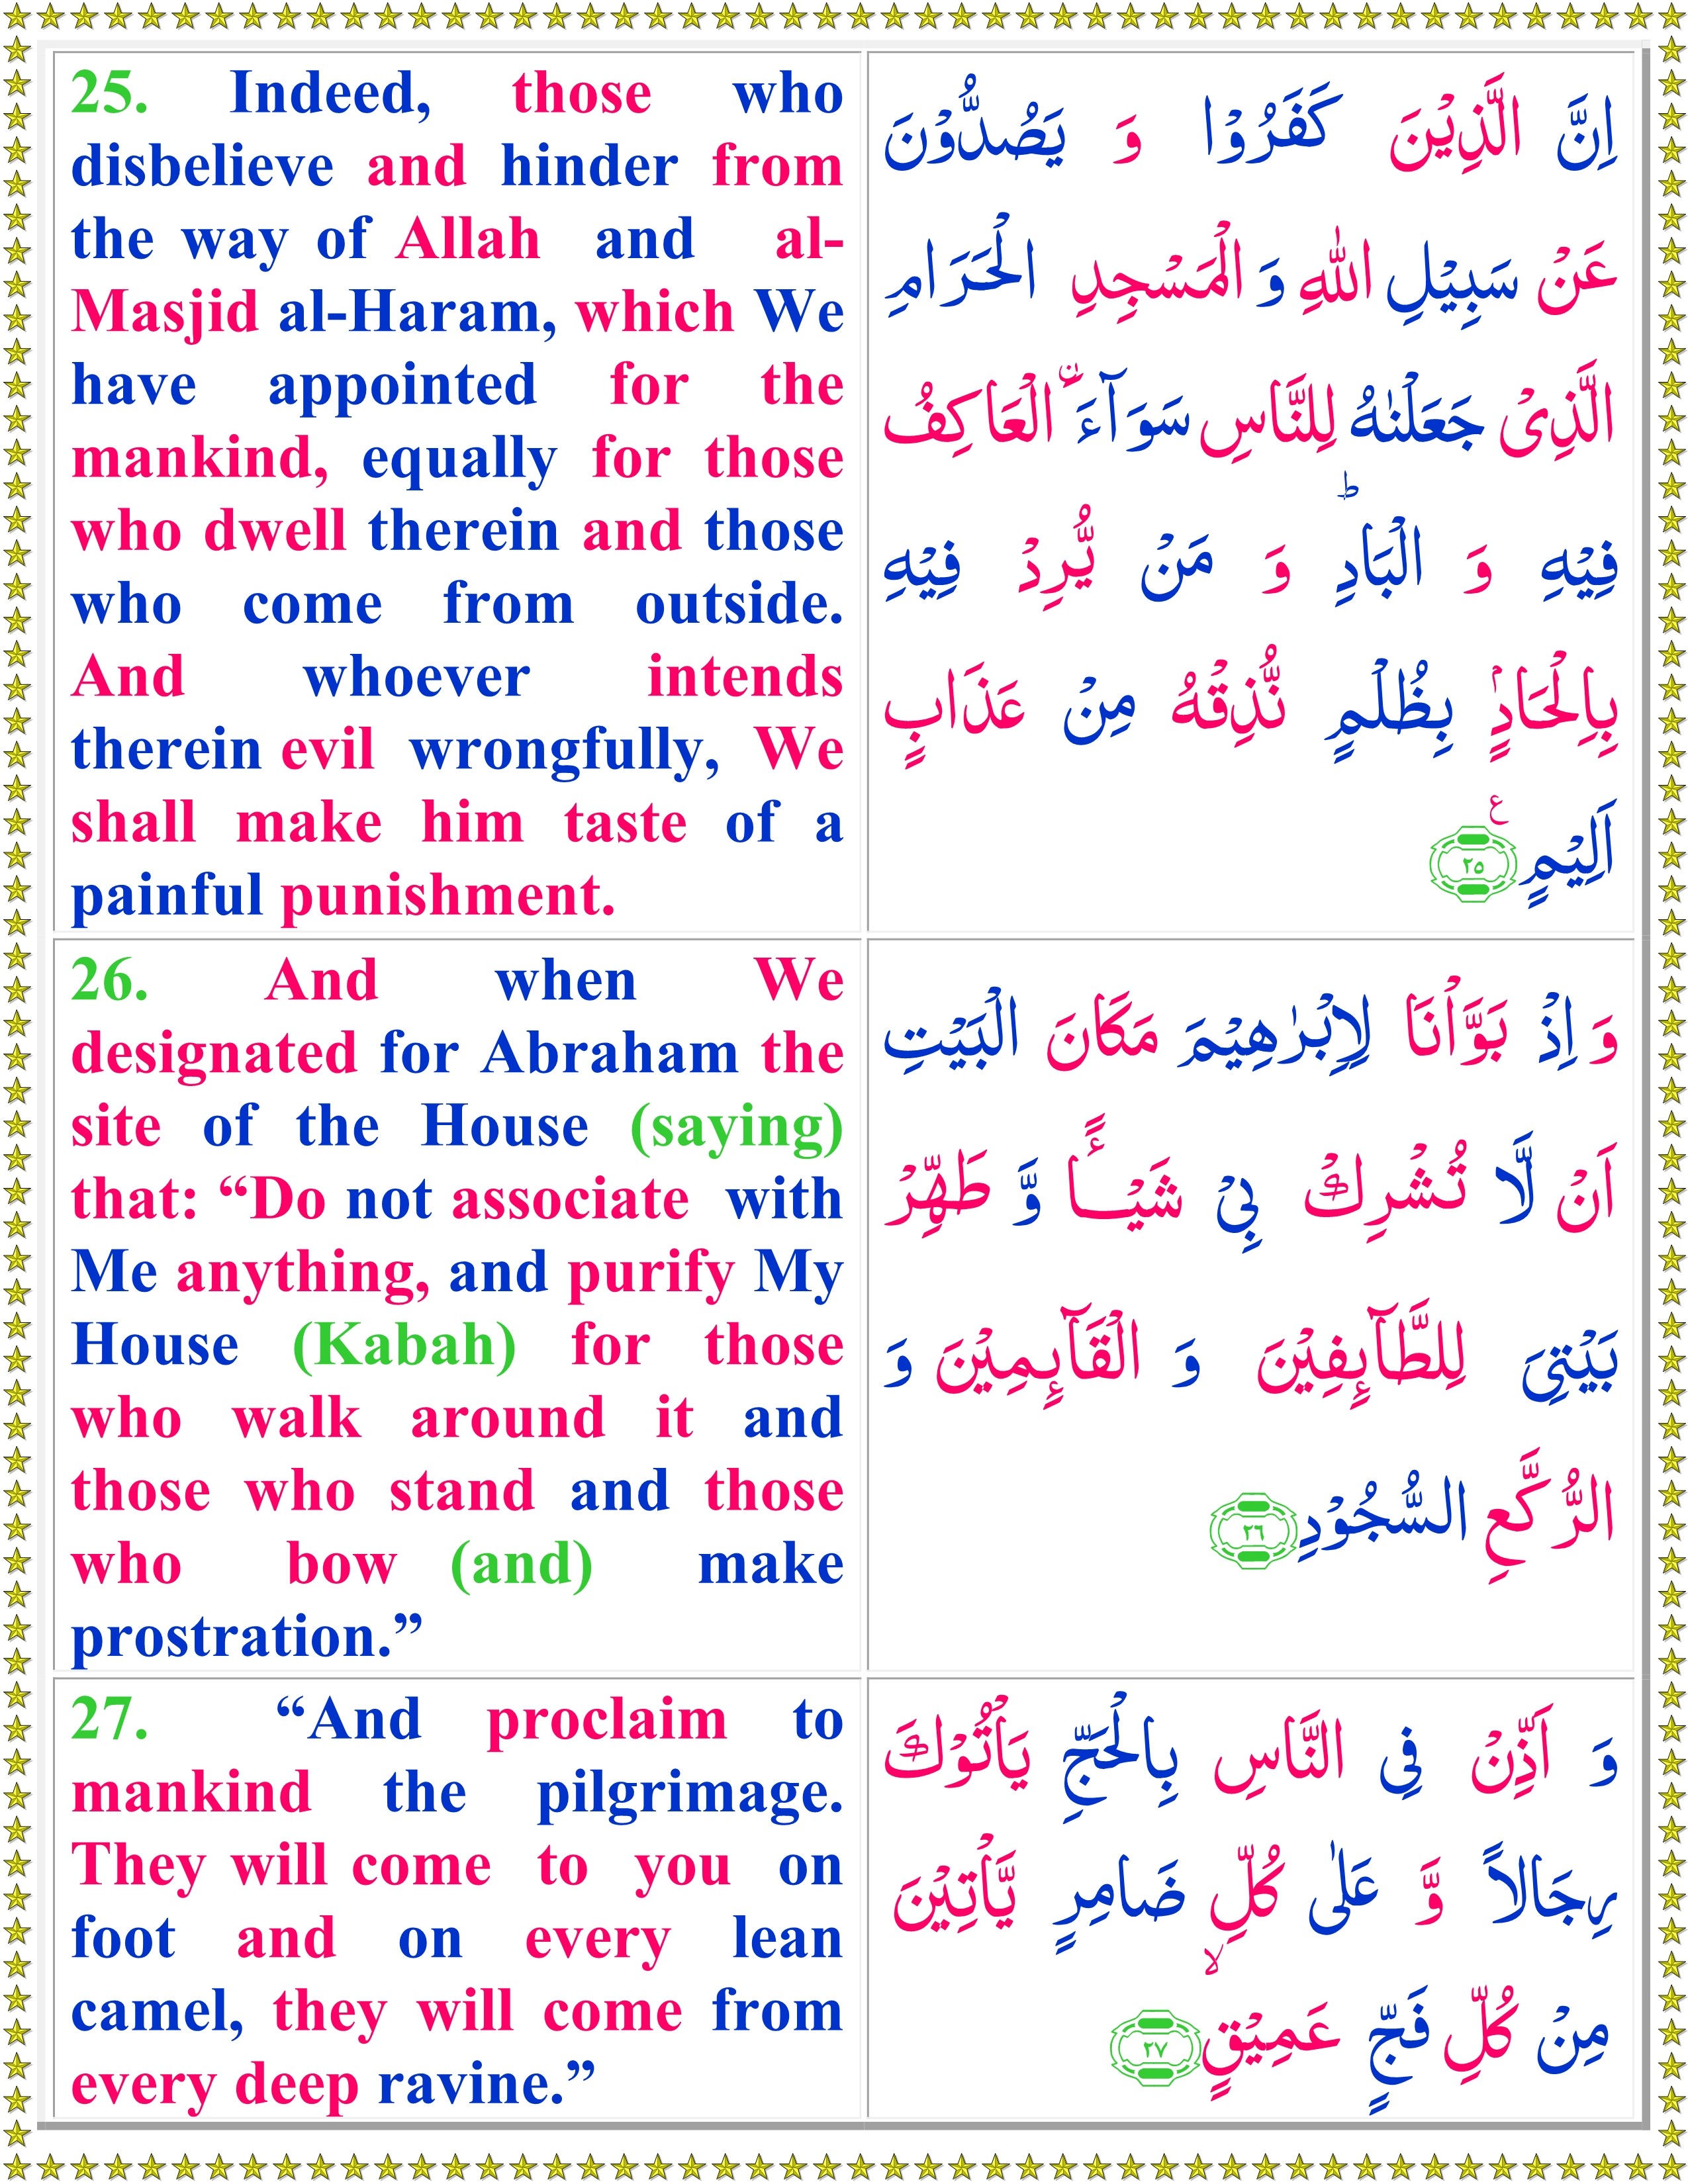 25. Indeed, those who
disbelieve and hinder from
the way of Allah and al-
Masjid al-Haram, which We
have appointed for the
mankind, equally for those
who dwell therein and those
who come from outside.
And whoever intends
therein evil wrongfully, We
shall make him taste of a
painful punishment.
اِنَّ الَّذِيْنَ كَفَرُوْا وَ يَصُدُّوْنَ
عَنْ سَبِيْلِ اللّٰهِ وَ الْمَسْجِدِ الْحَرَامِ
الَّذِىْ جَعَلْنٰهُ لِلنَّاسِ سَوَآءَ ۨ الْعَاكِفُ
فِيْهِ وَ الْبَادِ ؕ وَ مَنْ يُّرِدْ فِيْهِ
بِاِلْحَادٍۢ بِظُلْمٍ نُّذِقْهُ مِنْ عَذَابٍ
اَلِيْمٍ ع ٢٥
26. And when We
designated for Abraham the
site of the House (saying)
that: “Do not associate with
Me anything, and purify My
House (Kabah) for those
who walk around it and
those who stand and those
who bow (and) make
prostration.”
وَ اِذْ بَوَّاْنَا لِاِبْرٰهِيْمَ مَكَانَ الْبَيْتِ
اَنْ لَّا تُشْرِكْ بِىْ شَيْـــًٔا وَّ طَهِّرْ
بَيْتِىَ لِلطَّآٮِٕفِيْنَ وَ الْقَآٮِٕمِيْنَ وَ
الرُّكَّعِ السُّجُوْدِ ٢٦
27. “And proclaim to
mankind the pilgrimage.
They will come to you on
foot and on every lean
camel, they will come from
every deep ravine.”
وَ اَذِّنْ فِى النَّاسِ بِالْحَجِّ يَاْتُوْكَ
رِجَالاً وَّ عَلٰى كُلِّ ضَامِرٍ يَّاْتِيْنَ
مِنْ كُلِّ فَجٍّ عَمِيْقٍ ۙ ٢٧